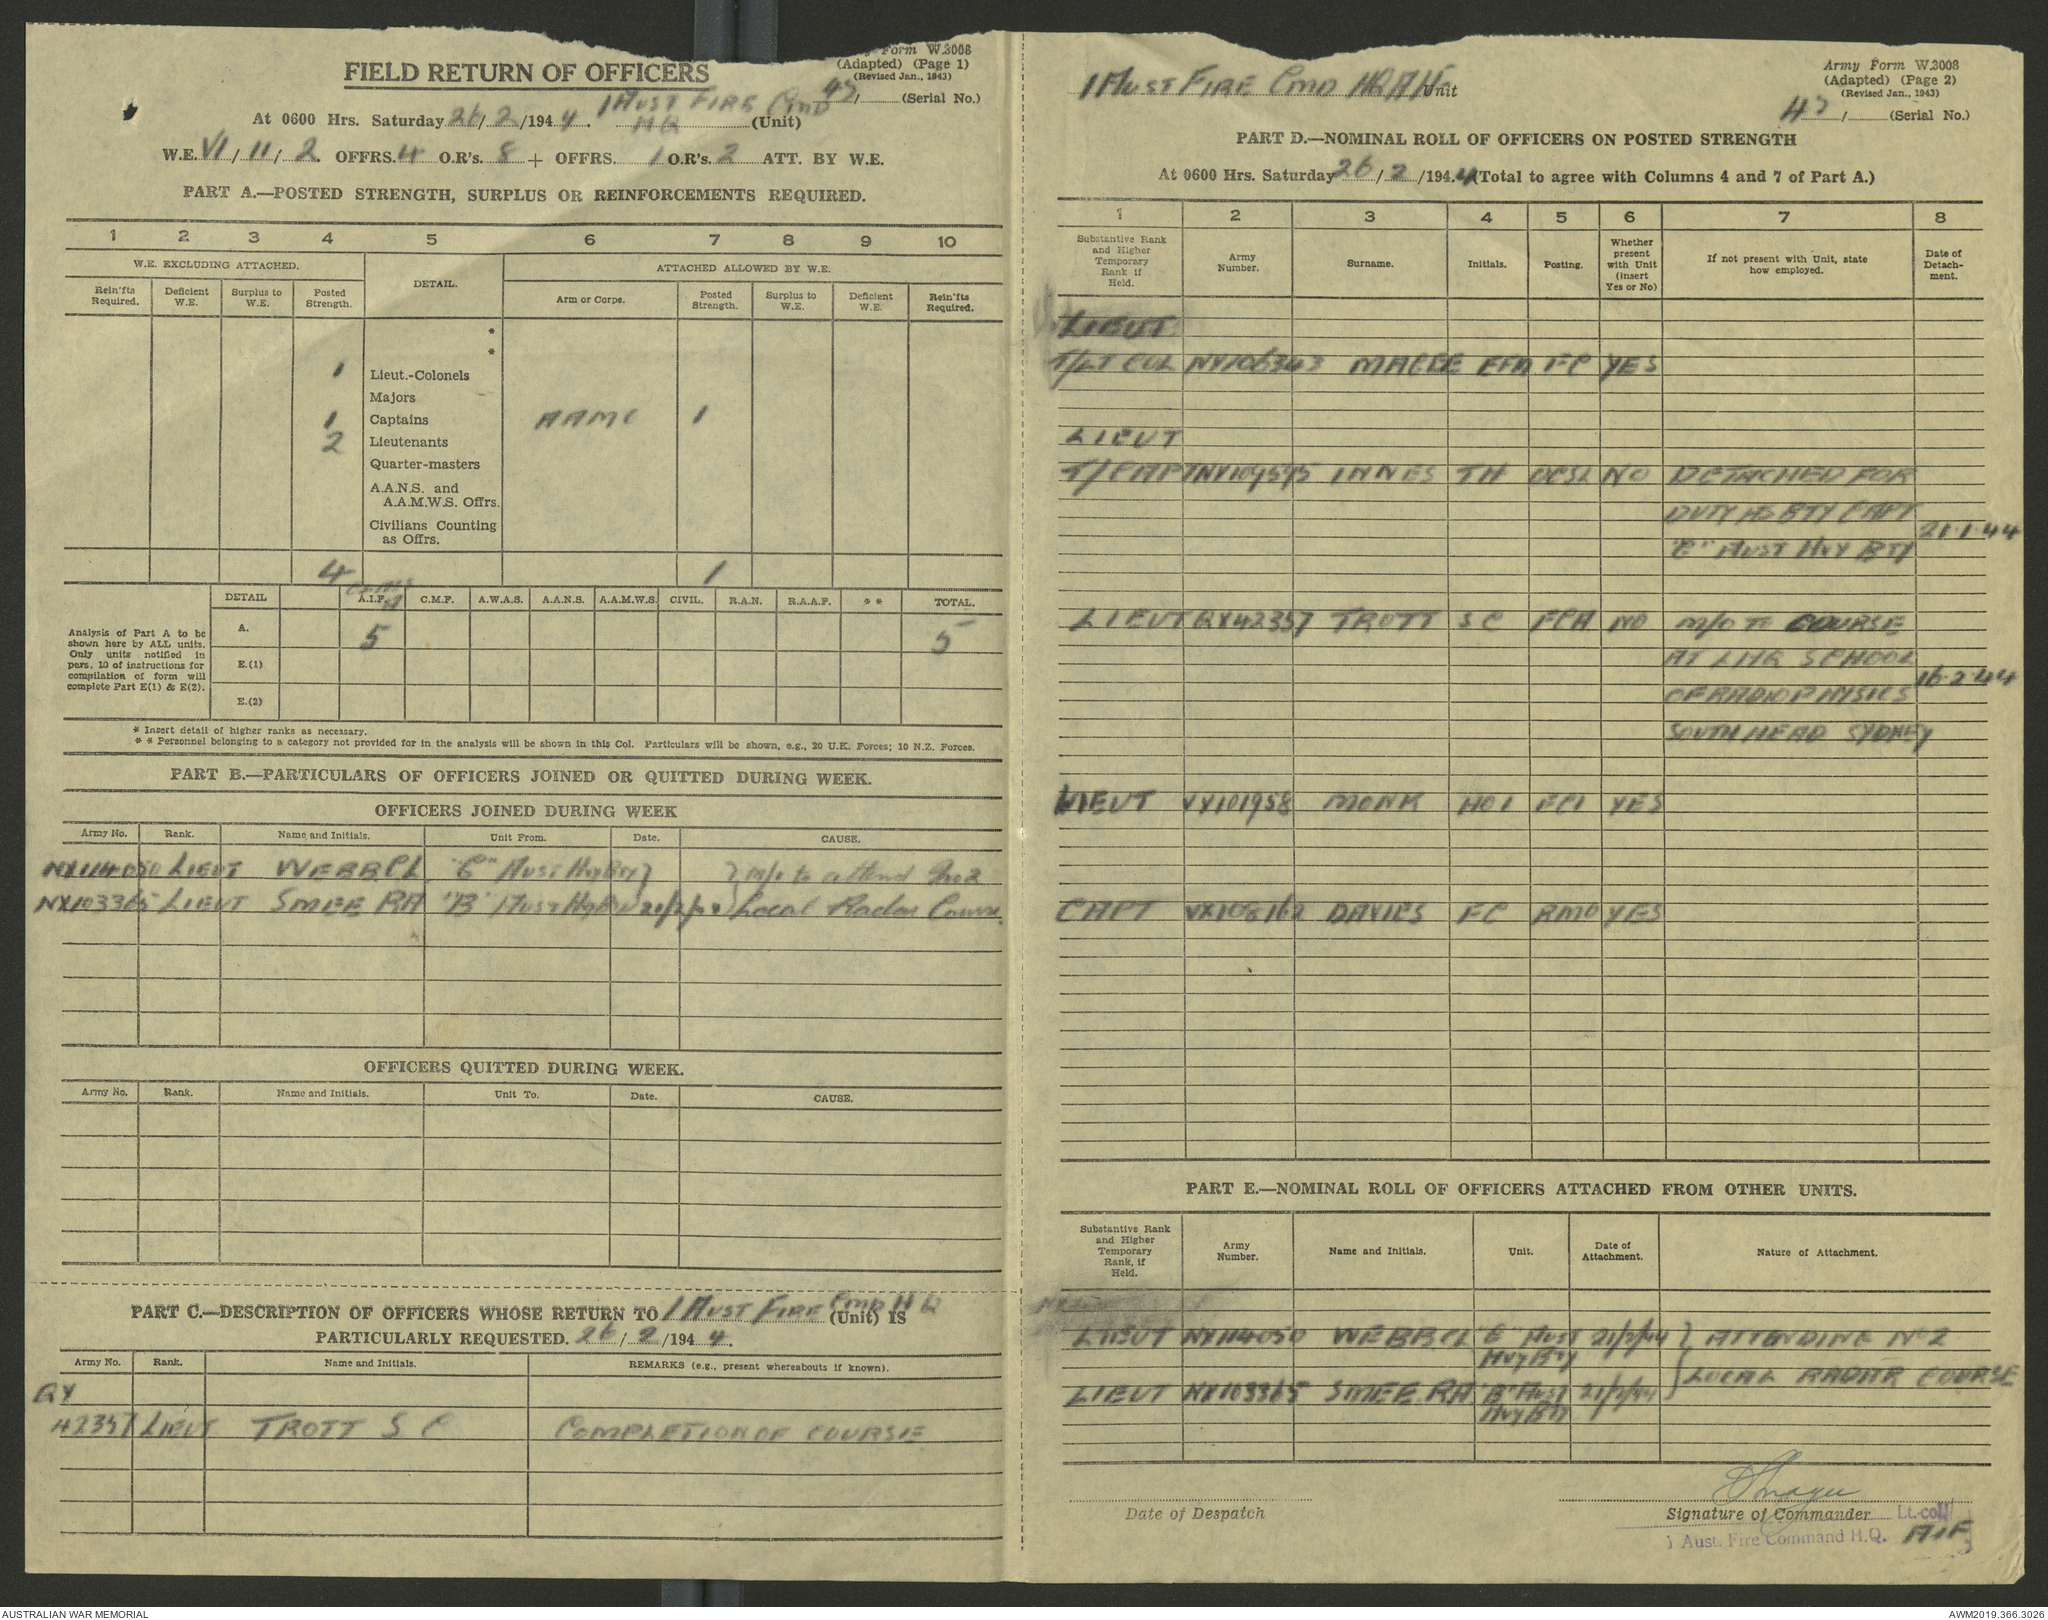 Form W.3008
(Adapted) (Page 1)
(Revised Jan., 1943)
FIELD RETURN OF OFFICERS
47/ (Serial No.)
At 0600 Hrs. Saturday 26/2/1944. 1 AUST FIRE CMD HQ (Unit)
W.E. VI/11/2. OFFRS. 4 O.R's. 8 + OFFRS. 1 O.R's. 2 ATT. BY W.E.
PART A.—POSTED STRENGTH, SURPLUS OR REINFORCEMENTS REQUIRED.
1 2 3 4 5 6 7 8 9 10
W.E. EXCLUDING ATTACHED. DETAIL. ATTACHED ALLOWED BY W.E.
Rein'fts Required. Deficient W.E. Surplus to W.E. Posted Strength. Arm or Corps. Posted Strength. Surplus to W.E. Deficient W.E. Rein'fts Required.
*
*
1 Lieut.-Colonels
Majors
1 Captains AAMC 1
2 Lieutenants
Quarter-masters
A.A.N.S. and
A.A.M.W.S. Offrs.
Civilians Counting
as Offrs.
4 1
DETAIL A.I.F. C.M.F. A.W.A.S. A.A.N.S. A.A.M.W.S. CIVIL. R.A.N. R.A.A.F. * * TOTAL.
Analysis of Part A to be
shown here by ALL units.
Only units notified in
para. 10 of instructions for
compilation of form will
complete Part E(1) & E(2).
A. 5 5
E.(1)
E.(2)
* Insert detail of higher ranks as necessary.
* * Personnel belonging to a category not provided for in the analysis will be shown in this Col. Particulars will be shown, e.g., 20 U.K. Forces; 10 N.Z. Forces.
PART B.—PARTICULARS OF OFFICERS JOINED OR QUITTED DURING WEEK.
OFFICERS JOINED DURING WEEK
Army No. Rank. Name and Initials. Unit From. Date. CAUSE.
NX114050 LIEUT WEBB CL "C" AUST HVY BTY } } m/o to attend No 2
NX103365 LIEUT SMEE RA "B" AUST HVY BTY 21/2/44 } Local Radar Course.
OFFICERS QUITTED DURING WEEK.
Army No. Rank. Name and Initials. Unit To. Date. CAUSE.
PART C.—DESCRIPTION OF OFFICERS WHOSE RETURN TO 1 AUST FIRE CMD HQ (Unit) IS
PARTICULARLY REQUESTED. 26/2/1944.
Army No. Rank. Name and Initials. REMARKS (e.g., present whereabouts if known).
QX
42357 LIEUT TROTT S C COMPLETION OF COURSE
1 AUST FIRE CMD HQ AIF Unit
Army Form W.3008
(Adapted) (Page 2)
(Revised Jan., 1943)
47/ (Serial No.)
PART D.—NOMINAL ROLL OF OFFICERS ON POSTED STRENGTH
At 0600 Hrs. Saturday 26/2/1944 (Total to agree with Columns 4 and 7 of Part A.)
1 2 3 4 5 6 7 8
Substantive Rank and Higher Temporary Rank if Held. Army Number. Surname. Initials. Posting. Whether present with Unit (insert Yes or No) If not present with Unit, state how employed. Date of Detachment.
LIEUT
T/LT COL NX106343 MAGEE EFA FC YES
LIEUT
T/CAPT NX109595 INNES TH OCSL NO DETACHED FOR
DUTY AS BTY CAPT
21·1·44
"C" AUST HVY BTY
LIEUT QX42357 TROTT S C FCA NO M/O TO COURSE
AT LHQ SCHOOL
16·2·44
OF RADIOPHYSICS
SOUTH HEAD SYDNEY
LIEUT VX101958 MONK HOI FCI YES
CAPT VX108162 DAVIES FC RMO YES
PART E.—NOMINAL ROLL OF OFFICERS ATTACHED FROM OTHER UNITS.
Substantive Rank and Higher Temporary Rank, if Held. Army Number. Name and Initials. Unit. Date of Attachment. Nature of Attachment.
LIEUT NX114050 WEBB CL "C" AUST HVY BTY 21/2/44 } ATTENDING No 2
LIEUT NX103365 SMEE RA "B" AUST HVY BTY 21/2/44 } LOCAL RADAR COURSE
Date of Despatch
Magee
Signature of Commander Lt.-col.
1 Aust. Fire Command H.Q. AIF
AUSTRALIAN WAR MEMORIAL
AWM2019.366.3026